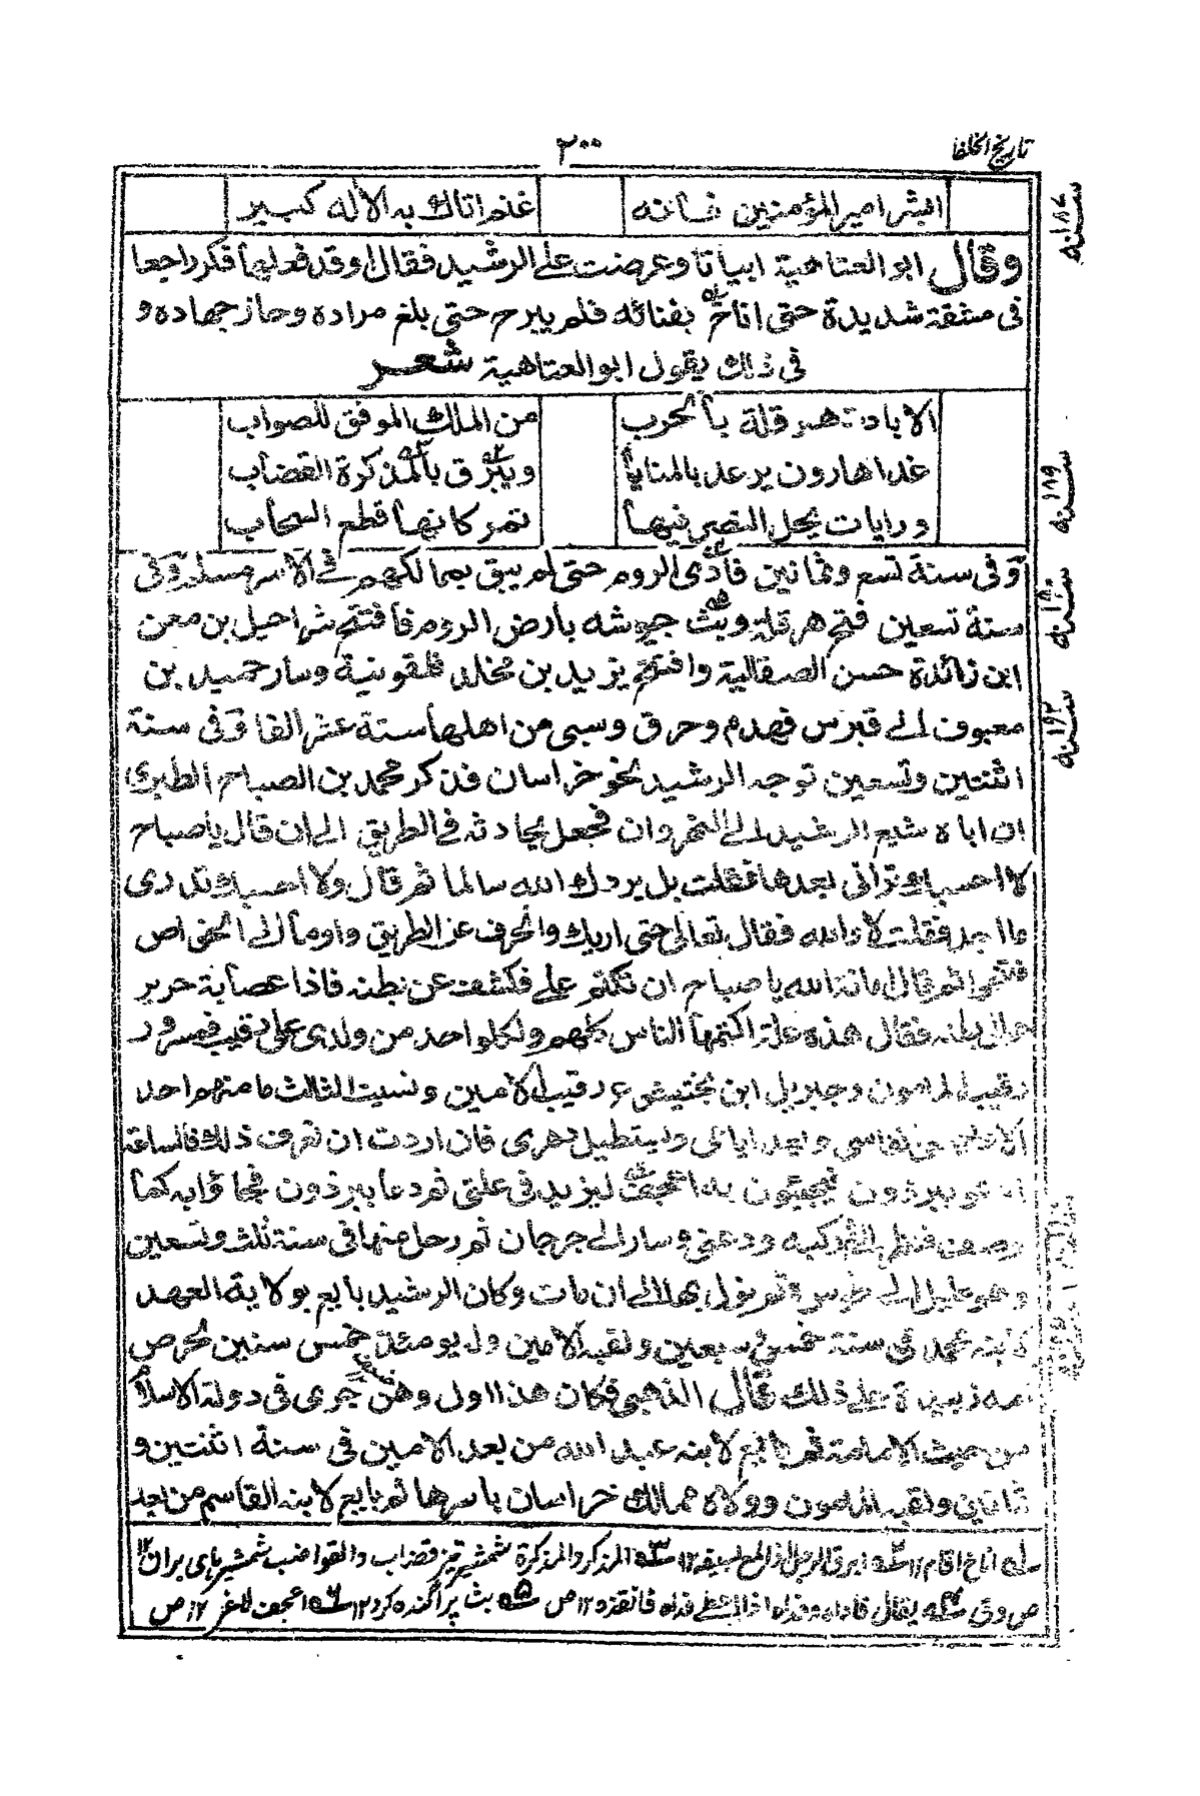 تاريخ الخلفا
٢٠٠
ابشر امير المؤمنين فانه غنم اتاك به الاله كبير
وقال ابو العتاهية ابياتا وعرضت على الرشيد فقال اوقد فعلها فكر راجعا
فى مشقة شديدة حتى اناخ بفنائه فلم يبرح حتى بلغ مراده وحاز جهاده و
فى ذلك يقول ابو العتاهية شعر
الا بادت هرقلة بالخرب من الملك الموفق للصواب
غدا هارون يرعد بالمنايا ويبرق بالمذكرة القضاب
ورايات يحل النصر فيها تمر كانها قطع السحاب
وفى سنة تسع وثمانين فادى الروم حتى لم يبق بممالكهم فى الاسر مسلم وفى
سنة تسعين فتح هرقلة وبث جيوشه بارض الروم فافتتح شراحيل بن معن
ابن زائدة حسن الصقالية وافتتح يزيد بن مخلد قلقونية وسار حميد بن
معيوف الى قبرس فهدم وحرق وسبى من اهلها ستة عشر الفا وفى سنة
اثنتين وتسعين توجه الرشيد نحو خراسان فذكر محمد بن الصباح الطبرى
ان اباه شيع الرشيد الى النهروان فجعل يحادثه فى الطريق الى ان قال يا صباح
لا احسبك ترانى بعدها فقلت بل يردك الله سالما ثم قال ولا احسبك تدرى
ما اجد فقلت لا والله فقال تعالى حتى اريك وانحرف عن الطريق واومأ الى الخواص
فتنحوا ثم قال امانة الله يا صباح ان تكتم على فكشف عن بطنه فاذا عصابة حرير
حوالى بطنه فقال هذه علة اكتمها الناس كلهم ولكل واحد من ولدى على رقيب فمسرور
رقيب المامون وجبريل ابن بختيشوع رقيب الامين ونسيت الثالث ما منهم احد
الا يحصى انفاسى ويعد ايامى ويستطيل دهرى فان اردت ان تعرف ذلك فالساعة
ادعو ببرذون فيجيئون به اعجف ليزيد فى علتى ثم دعا ببرذون فجاؤا به كما
وصف فنظر الى ثم ركبه وودعنى وسار الى جرجان ثم رحل منها فى سنة ثلث وتسعين
وهو عليل الى طوس فلم يزل بها الى ان مات وكان الرشيد بايع بولاية العهد
لابنه محمد فى سنة خمس وسبعين ولقبه الامين وله يومئذ خمس سنين لحرص
امه زبيدة على ذلك قال الذهبى فكان هذا اول وهن جرى فى دولة الاسلام
من حيث الامامة ثم بايع لابنه عبد الله من بعد الامين فى سنة اثنتين و
ثمانين ولقبه المامون وولاه ممالك خراسان باسرها ثم بايع لابنه القاسم من بعد
له اناخ اقام ١٢ ابرق الرجل اذا لمع بسيفه ١٢ المذكر والمذكرة شمشير تيز قضاب والقواضب شمشيرهاى بران ١٢
ص وق يقال فاداه وفداه اذا اعطى فداه فانقذه ١٢ ص بث پراگنده كرد ١٢ اعجف لاغر ١٢ ص
سنه ١٨٧
سنه ١٨٩
سنه ١٩٠
سنه ١٩٢